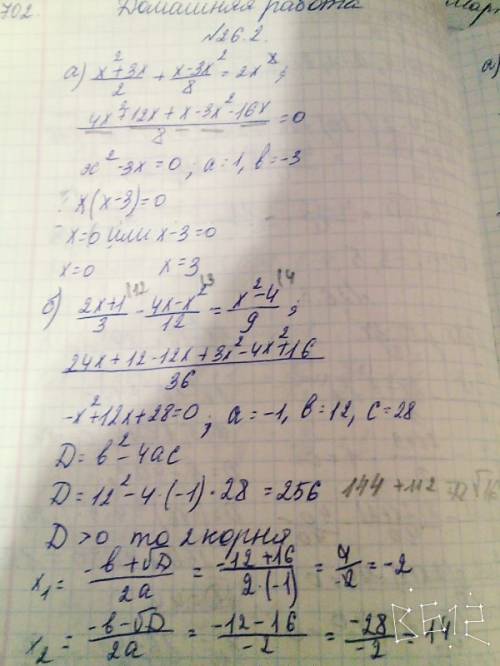 702 Домашняя работа
№26.2.
а) (x²+3x)/2 + (x-3x²)/8 = 2x ;
(4x²+12x+x-3x²-16x)/8 = 0
x²-3x=0 ; a=1, b=-3
x(x-3)=0
x=0 или x-3=0
x=0 x=3
б) (2x+1)/3 |12 - (4x-x²)/12 |3 = (x²-4)/9 |4 ;
(24x+12-12x+3x²-4x²+16)/36
-x²+12x+28=0 ; a=-1, b=12, c=28
D=b²-4ac
D=12²-4·(-1)·28=256 144+112
D>0 то 2 корня
x₁= (-b+√D)/2a = (-12+16)/(2·(-1)) = 4/-2 = -2
x₂= (-b-√D)/2a = (-12-16)/-2 = -28/-2 = 14